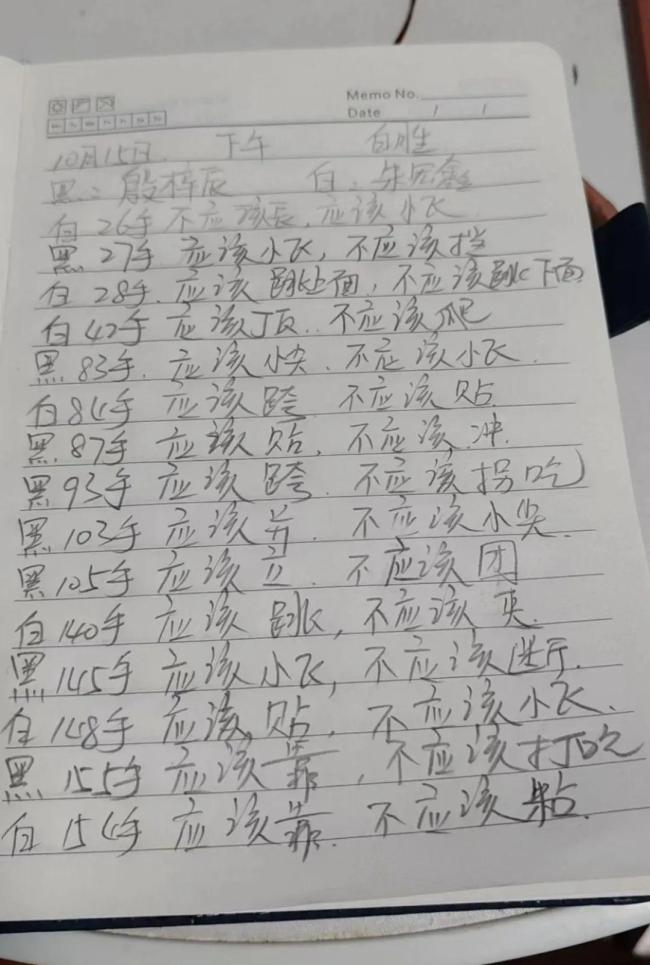 Memo No.
Date / /
10月15日. 下午 白胜
黑: 殷梓辰 白: 朱
白 26手 不应该长, 应该小飞
黑 27手 应该小飞, 不应该挡
白 28手. 应该跳上面, 不应该跳下面
白 42手 应该 不应该爬
黑 83手. 应该小尖. 不应该小飞.
白 84手 应该跨. 不应该贴
黑 87手 应该贴, 不应该冲.
黑 93手 应该跨. 不应该拐吃
黑 103手 应该并. 不应该小尖.
黑 105手 应该立. 不应该团
白 140手 应该跳, 不应该夹.
黑 145手 应该小飞, 不应该进.
白 148手 应该贴. 不应该小飞.
黑 155手 应该靠, 不应该打吃
白 154手 应该靠. 不应该粘.